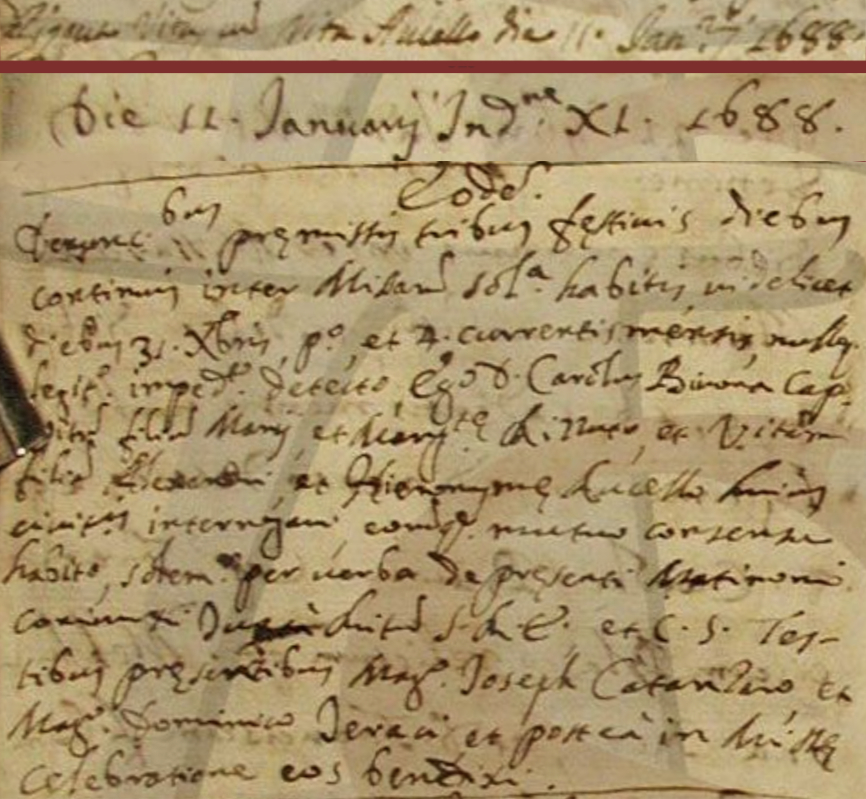 Vita Aniello die 11. Jan.ij 1688
Die 11. Januarij Ind.ne XI. 1688.
Eodē.
Denunc.bus pręmissis tribus festiuis diebus
continuis inter Missarū sol.a habitis, videlicet
diebus 31. Xbris, p.o, et 4. currentis mensis, nulloq.
legit.o imped.to detecto, Ego D. Carolus Bivona Cap.
filiū Marij et Marg.tę et
filiā et Hieronymę Lucello huius
ciuit.tis interrogaui eorūq. mutuo consensu
habito, solem.r per uerba de pręsenti Matrimonio
coniunxi Ritū S. R. E. et C. S. Tes-
tibus pręsentibus Mag.o Joseph Catanzaro et
Mag.o Dominico Jeraci et posteà in Missę
celebratione eos benedixi.